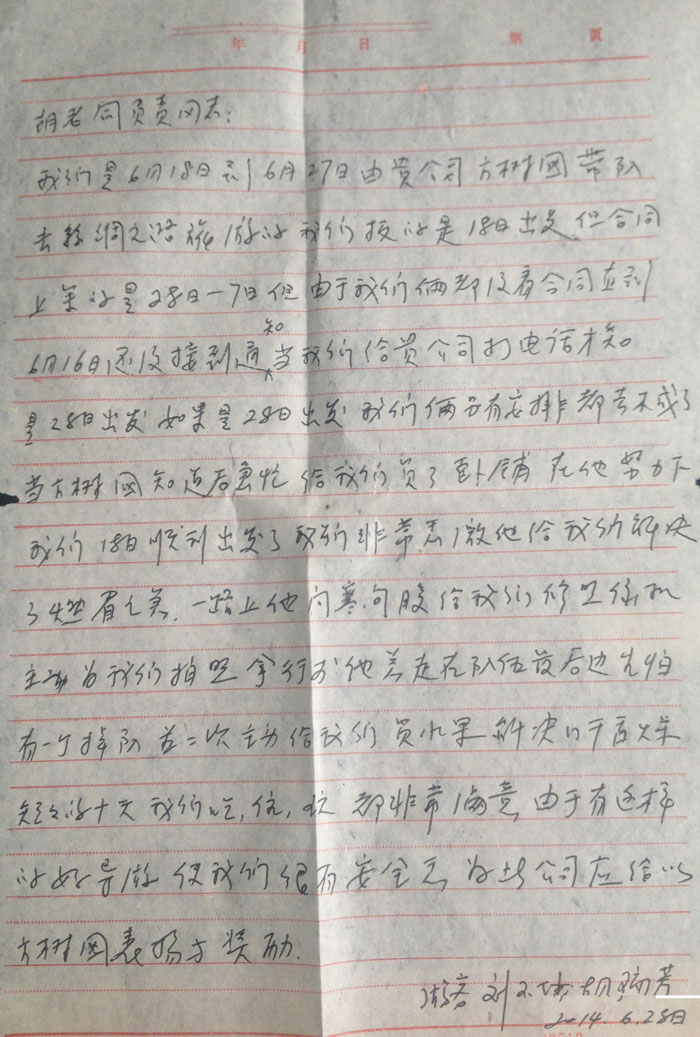 年 月 日 第 页
胡老 负责同志:
我们是6月18日到6月27日由贵公司方树国带队
去丝绸之路旅游的我们报的是18日出发,但合同
上写的是28日-7日但由于我们俩都没看合同直到
6月16日还没接到通知当我们给贵公司打电话核。
是28日出发如果是28日出发我们俩 有安排都去不成了
当方树国知道后急忙给我们买了卧铺在他努力下
我们18日顺利出发了我们非常感激他给我们解决
了燃眉之急.一路上他问寒问暖给我们修照像机
主动为我们拍照拿行李他总走在队伍最后边生怕
有一个掉队 二次主动给我们买水果解决口干舌燥
短短的十天我们吃,住,玩 都非常满意,由于有这样
的好导游使我们很有安全感 为此公司应给以
方树国表扬与奖励.
游客 刘 胡瑞芳
2014.6.28日